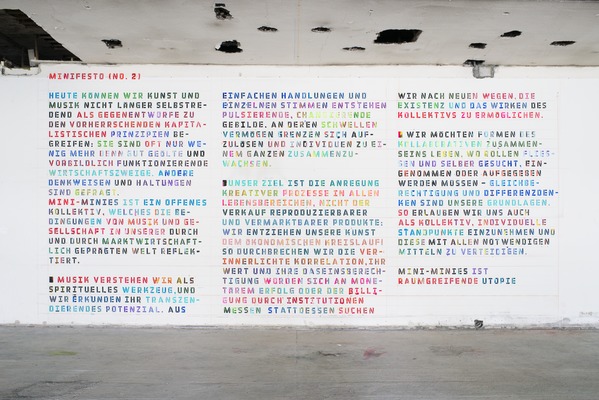 MINIFESTO (NO. 2)
HEUTE KÖNNEN WIR KUNST UND
MUSIK NICHT LÄNGER SELBSTRE-
DEND ALS GEGENENTWÜRFE ZU
DEN VORHERRSCHENDEN KAPITA-
LISTISCHEN PRINZIPIEN BE-
GREIFEN: SIE SIND OFT NUR WE-
NIG MEHR DENN GUT GEÖLTE UND
VORBILDLICH FUNKTIONIERENDE
WIRTSCHAFTSZWEIGE. ANDERE
DENKWEISEN UND HALTUNGEN
SIND GEFRAGT.
MINI-MINIES IST EIN OFFENES
KOLLEKTIV, WELCHES DIE BE-
DINGUNGEN VON MUSIK UND GE-
SELLSCHAFT IN UNSERER DURCH
UND DURCH MARKTWIRTSCHAFT-
LICH GEPRÄGTEN WELT REFLEK-
TIERT.
MUSIK VERSTEHEN WIR ALS
SPIRITUELLES WERKZEUG, UND
WIR ERKUNDEN IHR TRANSZEN-
DIERENDES POTENZIAL. AUS
EINFACHEN HANDLUNGEN UND
EINZELNEN STIMMEN ENTSTEHEN
PULSIERENDE, CHANGIERENDE
GEBILDE, AN DEREN SCHWELLEN
VERMÖGEN GRENZEN SICH AUF-
ZULÖSEN UND INDIVIDUEN ZU EI-
NEM GANZEN ZUSAMMENZU-
WACHSEN.
UNSER ZIEL IST DIE ANREGUNG
KREATIVER PROZESSE IN ALLEN
LEBENSBEREICHEN, NICHT DER
VERKAUF REPRODUZIERBARER
UND VERMARKTBARER PRODUKTE:
WIR ENTZIEHEN UNSERE KUNST
DEM ÖKONOMISCHEN KREISLAUF!
SO DURCHBRECHEN WIR DIE VER-
INNERLICHTE KORRELATION, IHR
WERT UND IHRE DASEINSBERECH-
TIGUNG WÜRDEN SICH AN MONE-
TÄREM ERFOLG ODER DER BILLI-
GUNG DURCH INSTITUTIONEN
MESSEN. STATTDESSEN SUCHEN
WIR NACH NEUEN WEGEN, DIE
EXISTENZ UND DAS WIRKEN DES
KOLLEKTIVS ZU ERMÖGLICHEN.
WIR MÖCHTEN FORMEN DES
KOLLABORATIVEN ZUSAMMEN-
SEINS LEBEN. WO POLLEN FLIES-
SEN UND SELBER GESUCHT, EIN-
GENOMMEN ODER AUFGEGEBEN
WERDEN MÜSSEN – GLEICHBE-
RECHTIGUNG UND DIFFERENZDEN-
KEN SIND UNSERE GRUNDLAGEN.
SO ERLAUBEN WIR UNS AUCH
ALS KOLLEKTIV, INDIVIDUELLE
STANDPUNKTE EINZUNEHMEN UND
DIESE MIT ALLEN NOTWENDIGEN
MITTELN ZU VERTEIDIGEN.
MINI-MINIES IST
RAUMGREIFENDE UTOPIE